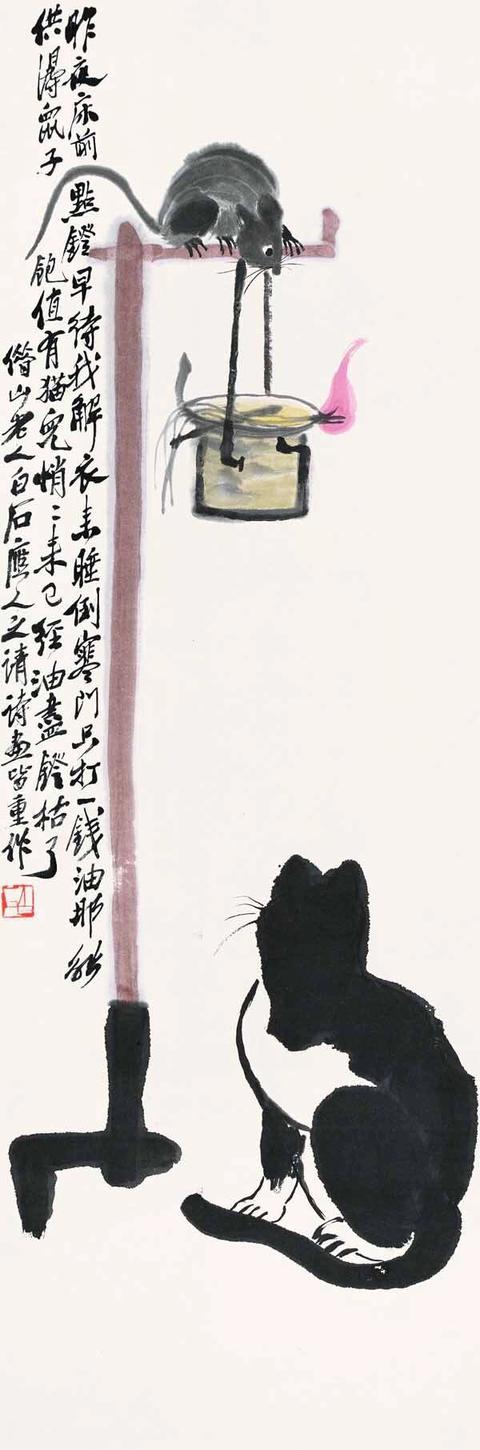 昨夜床前點鐙早待我解衣來睡倒寒門只打弌錢油那能
供得鼠子飽值有猫兒悄〻來已經油盡鐙枯了
借山老人白石應人之請詩畫皆重作